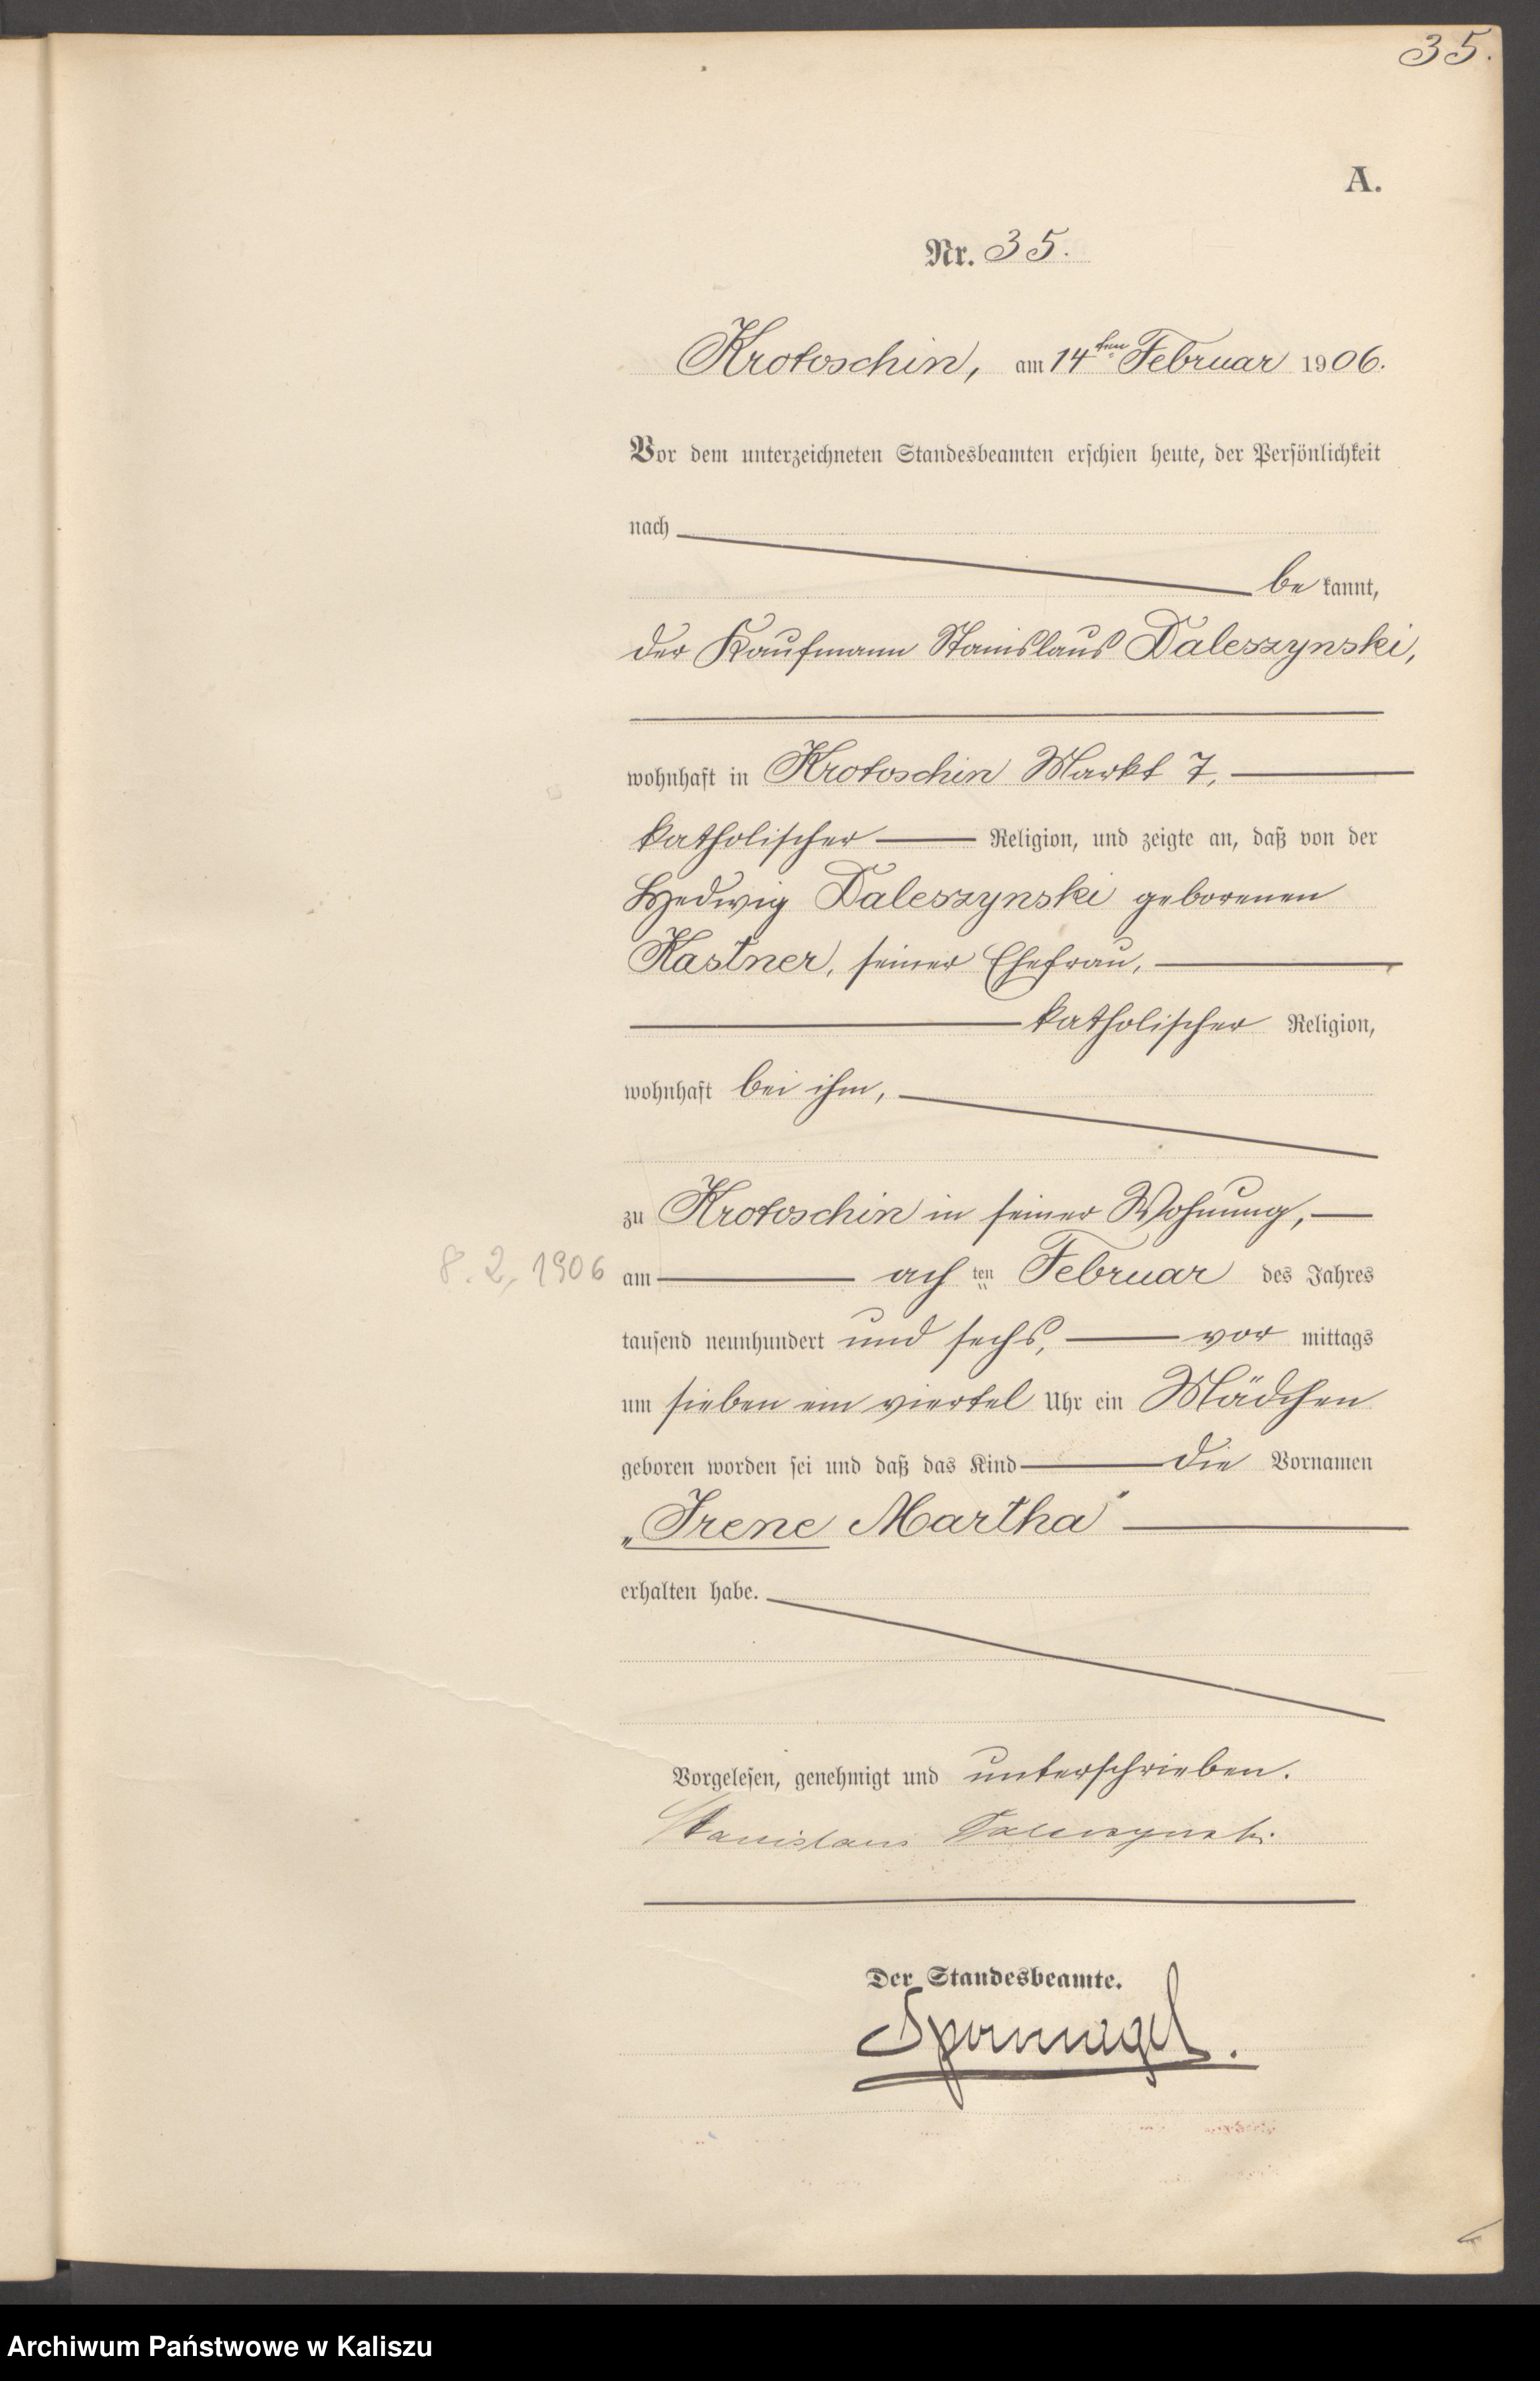 35.
A.
Nr. 35.
Krotoschin, am 14ten Februar 1906.
Vor dem unterzeichneten Standesbeamten erschien heute, der Persönlichkeit
nach
be kannt,
der Kaufmann Stanislaus Daleszynski,
wohnhaft in Krotoschin Markt 7,
katholischer Religion, und zeigte an, daß von der
Hedwig Daleszynski geborenen
Kastner, seiner Ehefrau,
katholischer Religion,
wohnhaft bei ihm,
zu Krotoschin in seiner Wohnung,
8. 2. 1906 am ach ten Februar des Jahres
tausend neunhundert und sechs, vor mittags
um sieben ein viertel Uhr ein Mädchen
geboren worden sei und daß das Kind die Vornamen
„Irene Martha"
erhalten habe.
Vorgelesen, genehmigt und unterschrieben.
Stanislaus Daleszynski.
Der Standesbeamte.
Sponnagel.
Archiwum Państwowe w Kaliszu